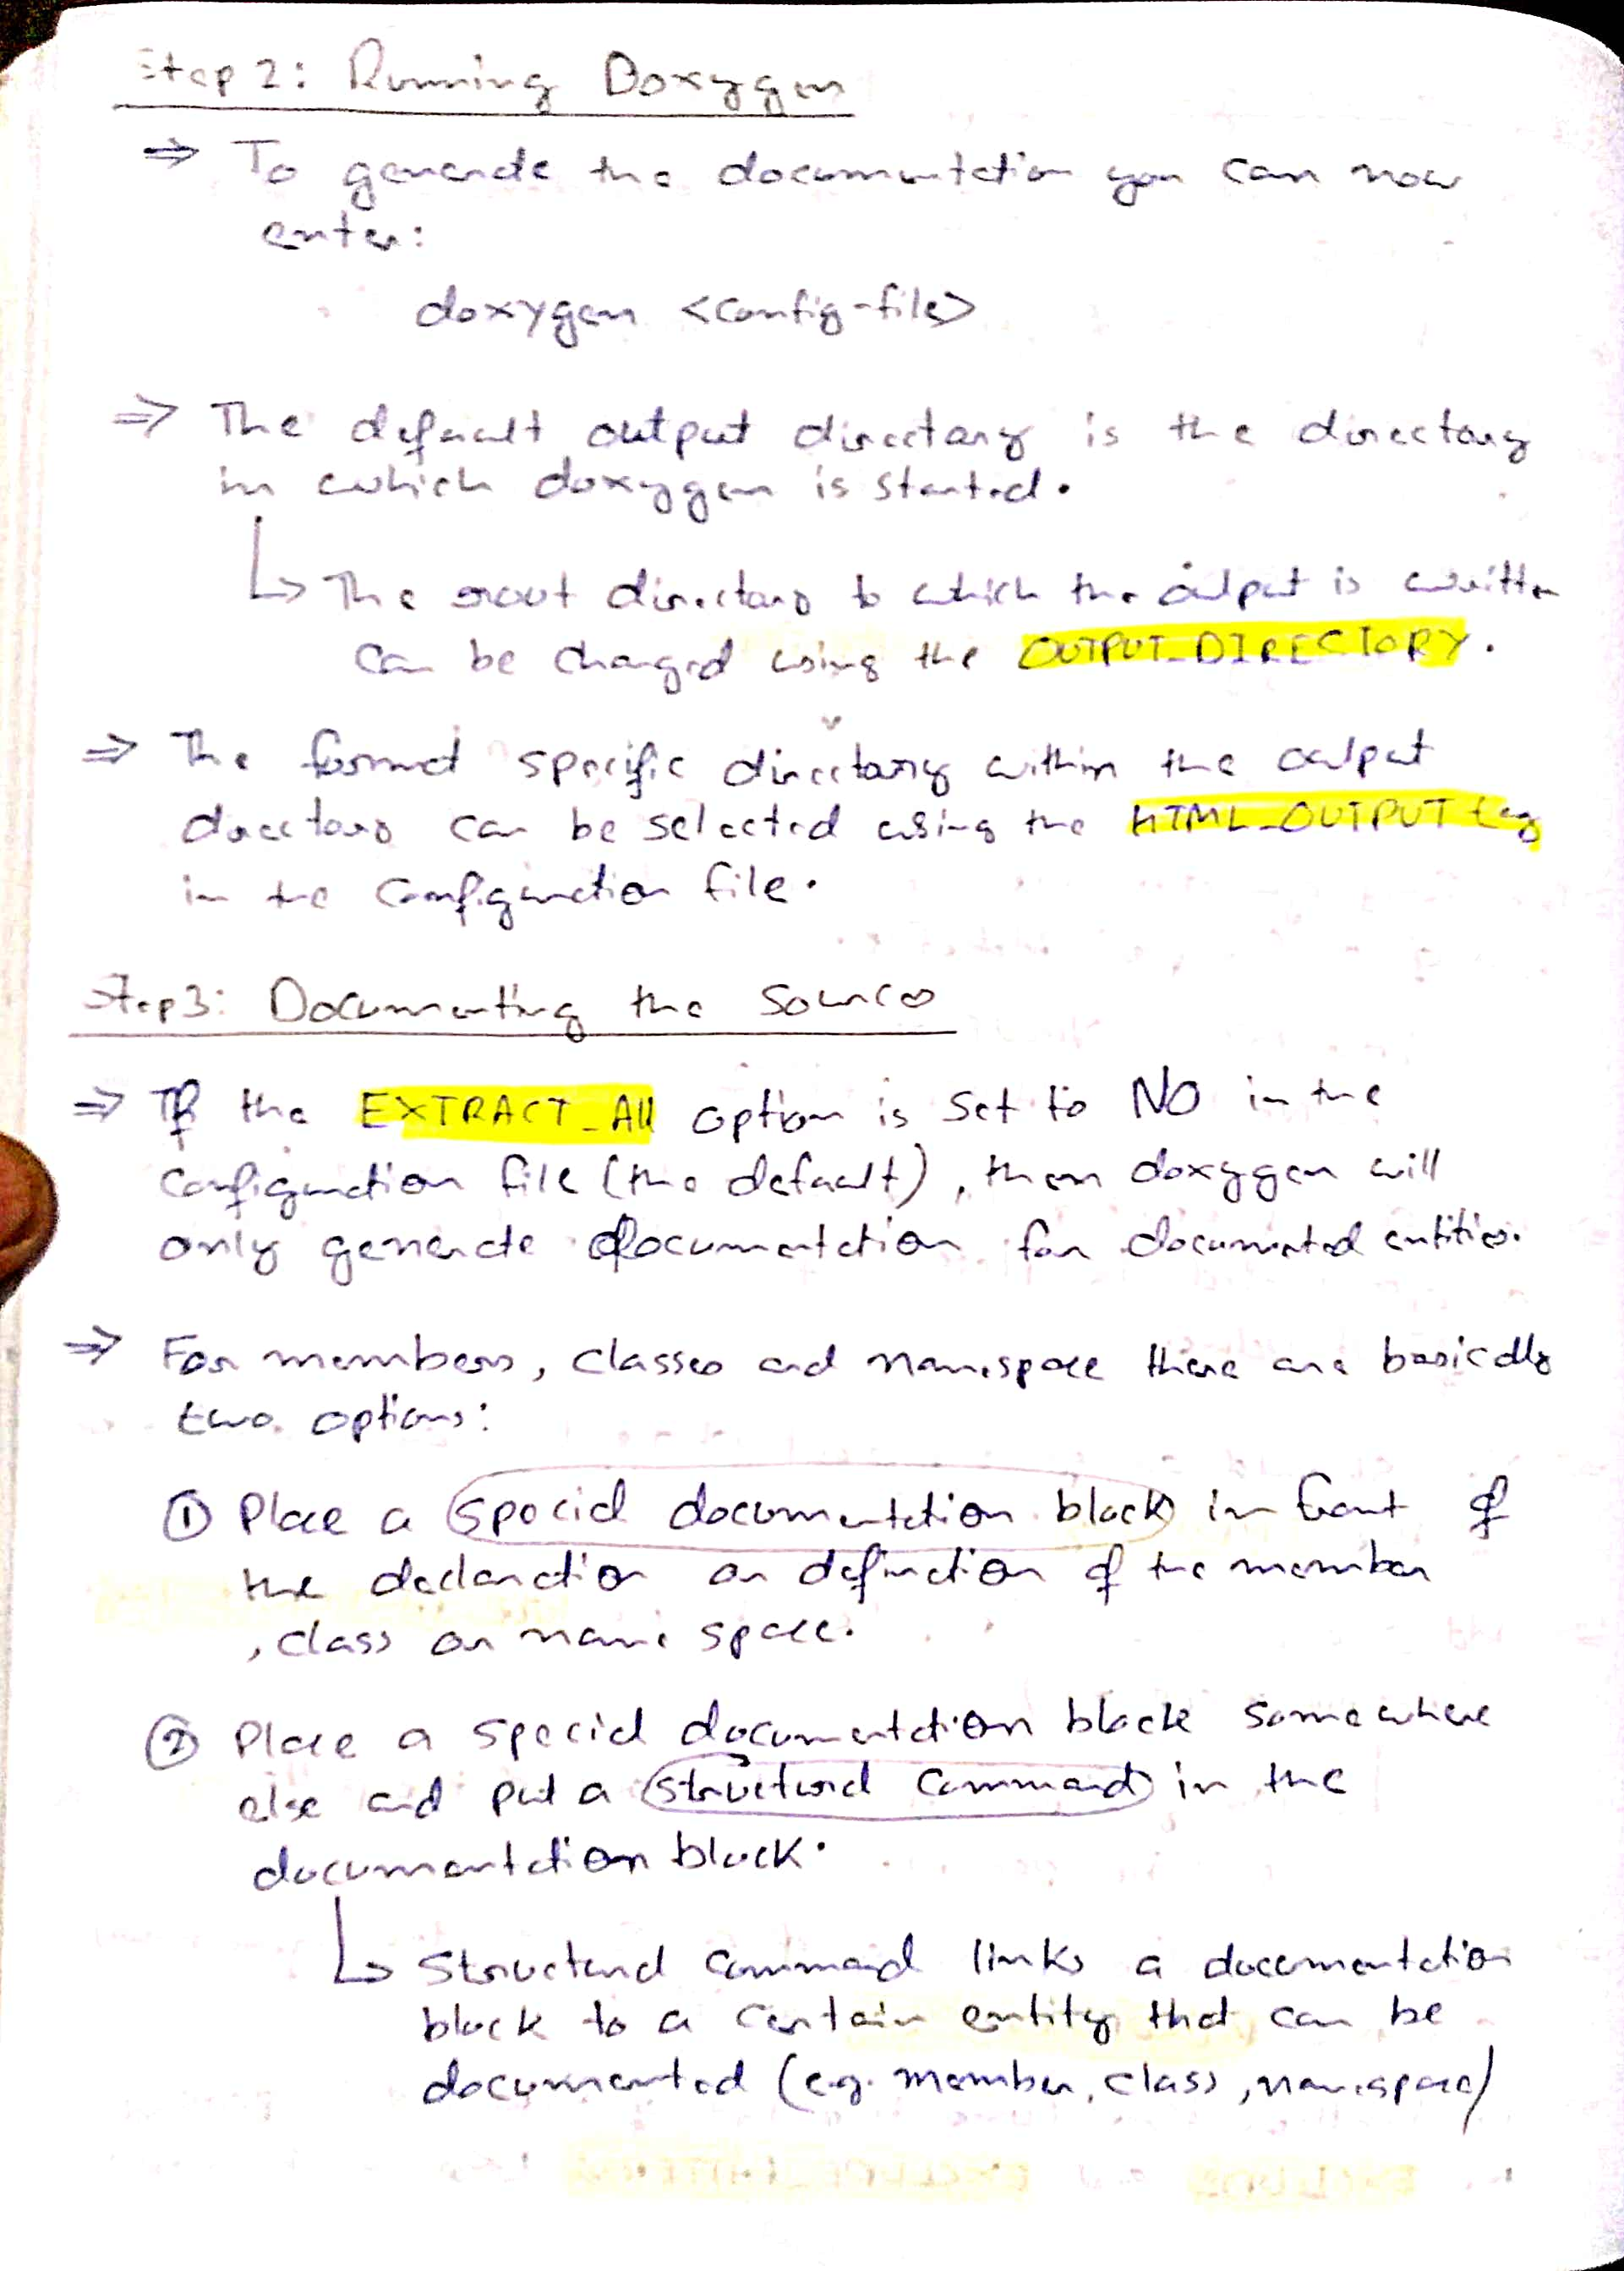 Step 2: Running Doxygen
⇒ To generate the documentation you can now
enter:
doxygen <config-file>
⇒ The default output directory is the directory
in which doxygen is started.
↳ The root directory to which the output is written
can be changed using the OUTPUT_DIRECTORY.
⇒ The format specific directory within the output
directory can be selected using the HTML_OUTPUT tag
in the configuration file.
Step 3: Documenting the Sources
⇒ If the EXTRACT_All option is set to NO in the
configuration file (the default), then doxygen will
only generate documentation for documented entities.
⇒ For members, classes and namespace there are basically
two options:
① Place a special documentation block in front of
the declaration or definition of the member
, class or name space.
② Place a special documentation block somewhere
else and put a structural command in the
documentation block.
↳ Structural command links a documentation
block to a certain entity that can be
documented (e.g. member, class, namespace)